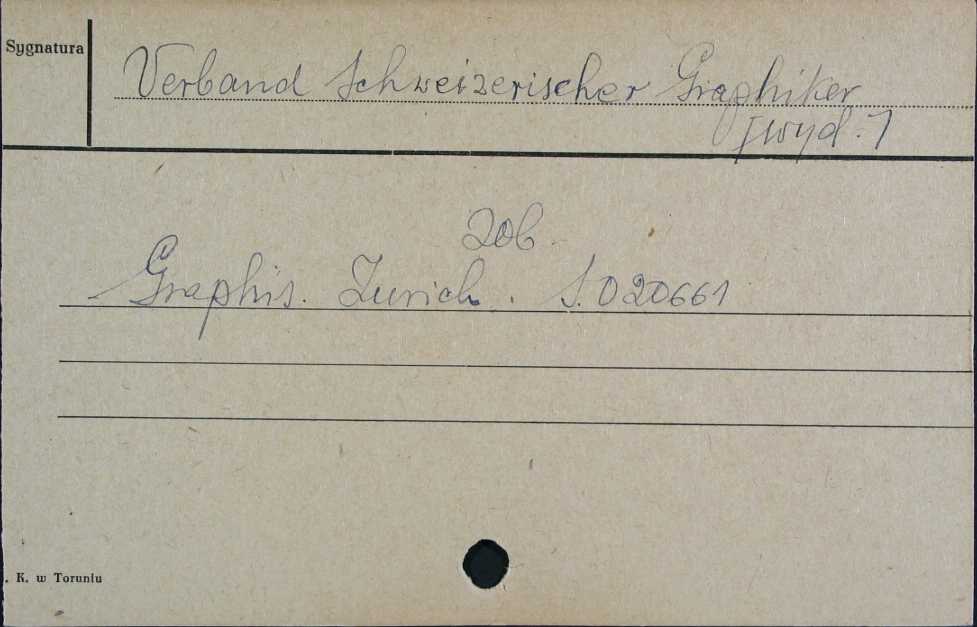 Sygnatura
Verband Schweizerischer Graphiker
[wyd.]
zob.
Graphis. Zurich. S. 020661
. K. w Toruniu